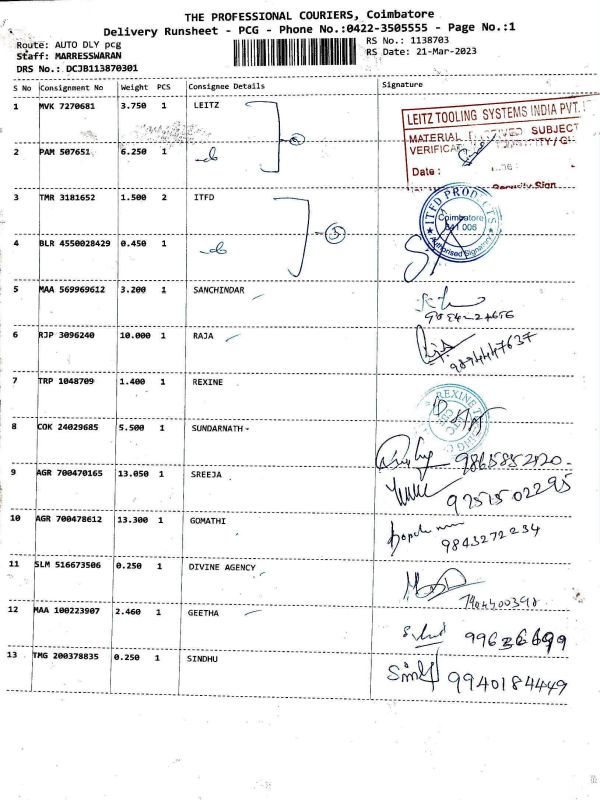 THE PROFESSIONAL COURIERS, Coimbatore
Delivery Runsheet - PCG - Phone No.:0422-3505555 - Page No.:1
Route: AUTO DLY pcg
RS No.: 1138703
Staff: MARRESSWARAN
RS Date: 21-Mar-2023
DRS No.: DCJB113870301
S No Consignment No Weight PCS Consignee Details Signature
1 MVK 7270681 3.750 1 LEITZ
LEITZ TOOLING SYSTEMS INDIA PVT.
MATERIAL SUBJECT
Date :
2 PAM 507651 6.250 1
Security Sign
3 TMR 3181652 1.500 2 ITFD
ITFD PRODUCTS
Coimbatore
641 006
Authorised Signatory
4 BLR 4550028429 0.450 1
5 MAA 569969612 3.200 1 SANCHINDAR
6 RJP 3096240 10.000 1 RAJA
9894447637
7 TRP 1048709 1.400 1 REXINE
REXINE
8 COK 24029685 5.500 1 SUNDARNATH
9865852120
9 AGR 700470165 13.050 1 SREEJA
9751502295
10 AGR 700478612 13.300 1 GOMATHI
9843272234
11 SLM 516673506 0.250 1 DIVINE AGENCY
12 MAA 100223907 2.460 1 GEETHA
13 TMG 200378835 0.250 1 SINDHU
9940184449